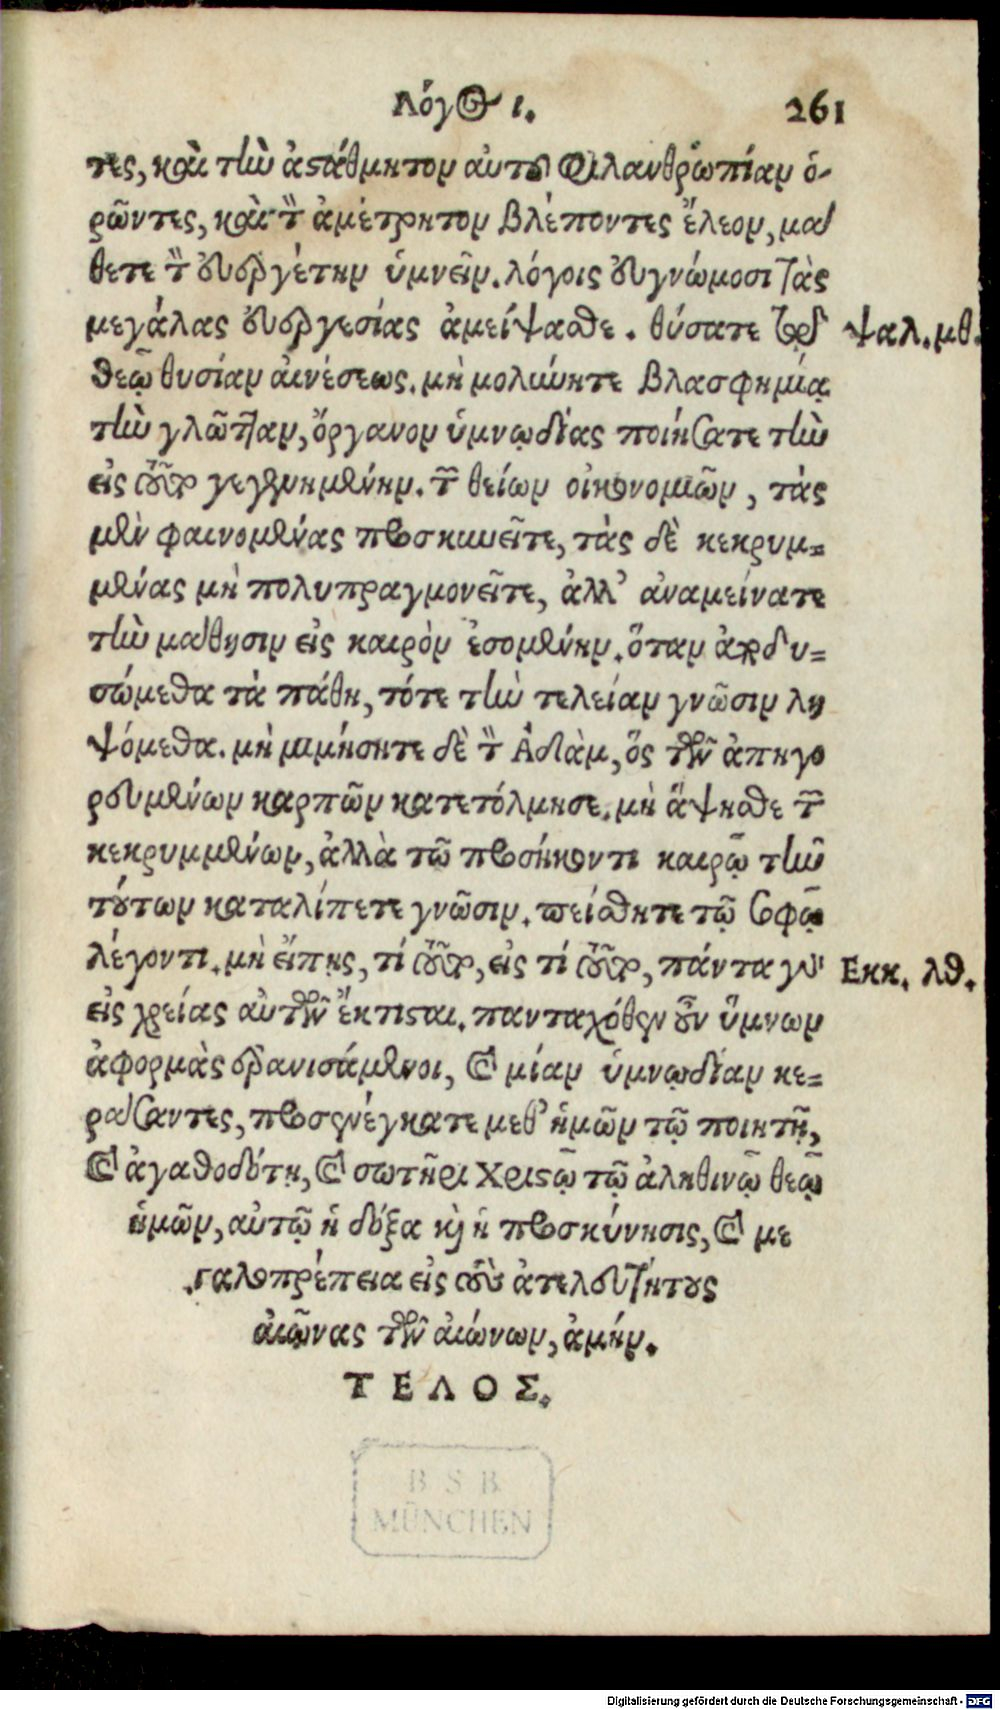 Λόγος ι. 261
τες, καὶ τὴν ἀστάθμητον αὐτοῦ φιλανθρωπίαν ὁ-
ρῶντες, καὶ τὸν ἀμέτρητον βλέποντες ἔλεον, μά
θετε τὸν εὐεργέτην ὑμνεῖν. λόγοις εὐγνώμοσι τὰς
μεγάλας εὐεργεσίας ἀμείψασθε. θύσατε τῷ
ψαλ. μθ.
θεῷ θυσίαν αἰνέσεως. μὴ μολύνητε βλασφημίᾳ
τὴν γλῶτταν, ὄργανον ὑμνῳδίας ποιήσατε τὴν
εἰς τοῦτο γεγενημένην. τῶν θείων οἰκονομιῶν, τὰς
μὲν φαινομένας προσκυνεῖτε, τὰς δὲ κεκρυμ=
μένας μὴ πολυπραγμονεῖτε, ἀλλ' ἀναμείνατε
τὴν μάθησιν εἰς καιρὸν ἐσομένην. ὅταν ἀπεκδυ=
σώμεθα τὰ πάθη, τότε τὴν τελείαν γνῶσιν λη
ψόμεθα. μὴ μιμήσητε δὲ τὸν Ἀδὰμ, ὃς τῶν ἀπηγο
ρευμένων καρπῶν κατετόλμησε. μὴ ἅψησθε τῶν
κεκρυμμένων, ἀλλὰ τῷ προσήκοντι καιρῷ τὴν
τούτων καταλίπετε γνῶσιν. πείσθητε τῷ σοφῷ
λέγοντι. μὴ εἴπῃς, τί τοῦτο, εἰς τί τοῦτο, πάντα γὰρ
Εκκ. λθ.
εἰς χρείας αὐτῶν ἔκτισται. πανταχόθεν οὖν ὕμνων
ἀφορμὰς ἐρανισάμενοι, καὶ μίαν ὑμνῳδίαν κε=
ράσαντες, προσενέγκατε μεθ' ἡμῶν τῷ ποιητῇ,
καὶ ἀγαθοδότῃ, καὶ σωτῆρι Χριστῷ τῷ ἀληθινῷ θεῷ
ἡμῶν, αὐτῷ ἡ δόξα καὶ ἡ προσκύνησις, καὶ με
γαλοπρέπεια εἰς τοὺς ἀτελευτήτους
αἰῶνας τῶν αἰώνων, ἀμήν.
ΤΕΛΟΣ.
B S B
MÜNCHEN
Digitalisierung gefördert durch die Deutsche Forschungsgemeinschaft - DFG